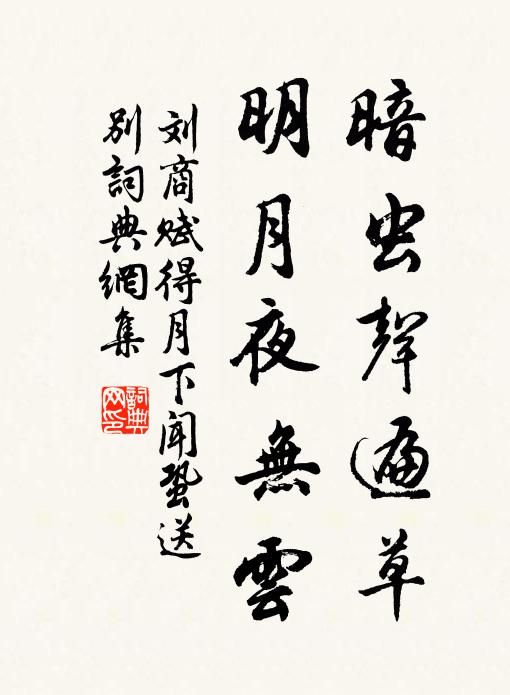 暗虫聲遍草
明月夜無雲
刘商赋得月下闻蛩送
别詞典網集
詞典
网印